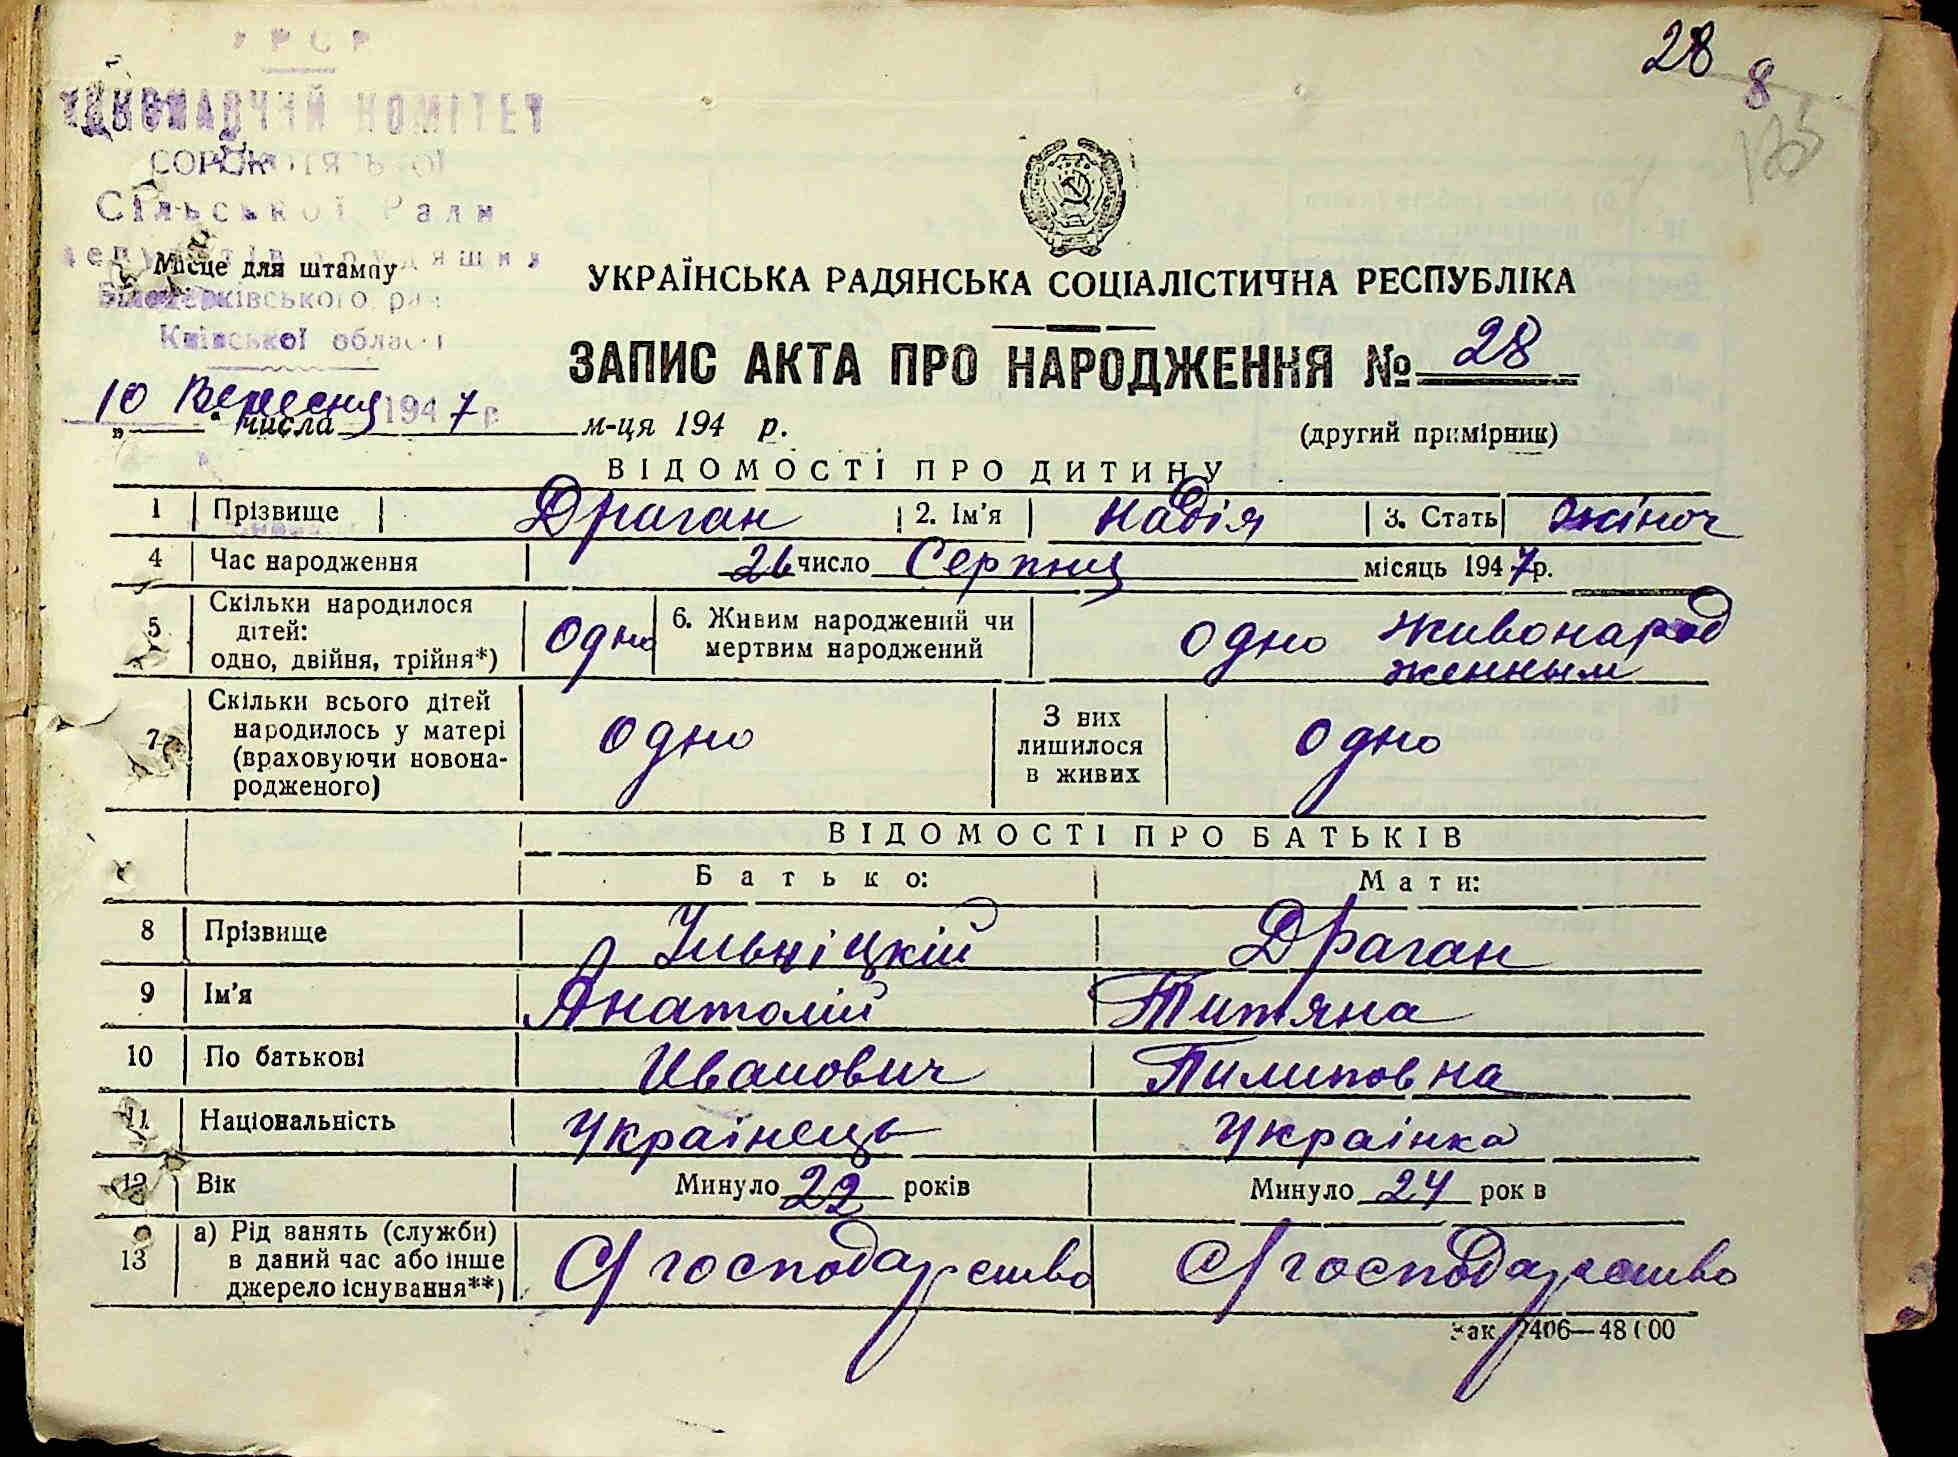 28
8
УРСР
ВИКОНАВЧИЙ КОМІТЕТ
Сільської Ради
депутатів трудящих
Білоцерківського р-ну
Київської області
Місце для штампу
УКРАЇНСЬКА РАДЯНСЬКА СОЦІАЛІСТИЧНА РЕСПУБЛІКА
ЗАПИС АКТА ПРО НАРОДЖЕННЯ № 28
10 Вересня 1947 р.
„ “ числа м-ця 194 р.
(другий примірник)
ВІДОМОСТІ ПРО ДИТИНУ
1 Прізвище Драган 2. Ім'я Надія 3. Стать жіноч
4 Час народження 26 число Серпня місяць 1947 р.
5 Скільки народилося дітей: одно, двійня, трійня*) одно 6. Живим народжений чи мертвим народжений одно живонарод
женным
7 Скільки всього дітей народилось у матері (враховуючи новона-
родженого) одно З них лишилося в живих одно
ВІДОМОСТІ ПРО БАТЬКІВ
Батько: Мати:
8 Прізвище Ільніцкій Драган
9 Ім'я Анатолій Титяна
10 По батькові Иванович Пилиповна
11 Національність Українець Украінка
12 Вік Минуло 22 років Минуло 24 рок в
13 а) Рід занять (служби) в даний час або інше джерело існування**) С/господарство С/господарство
Зак. 2406—48 000